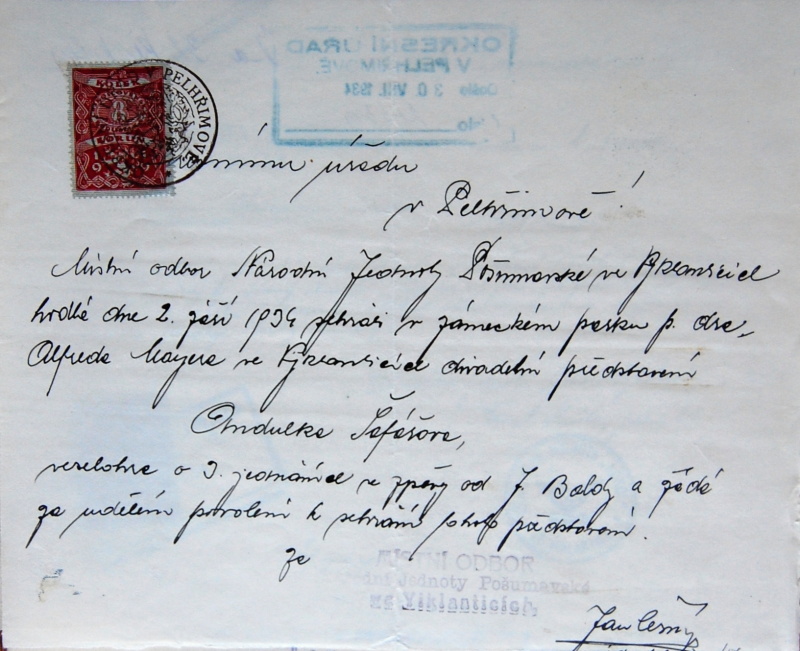 OKRESNÍ ÚŘAD
V PELHŘIMOVĚ
Došlo 30. VIII. 1934
Číslo
PELHŘIMOVĚ
KOLEK
úřadu
v Pelhřimově!
Místní odbor Národní Jednoty Pošumavské ve Vyklanticích
hodlá dne 2. září 1934 sehráti v zámeckém parku p. dra
Alfreda Mayera ve Vyklanticích divadelní představení
Andulka Šafářova,
veselohra o 3. jednáních se zpěvy od J. Baldy a žádá
za udělení povolení k sehrání tohoto představení.
za
MÍSTNÍ ODBOR
Jednoty Pošumavské
ve Viklanticích,
Jan Černý